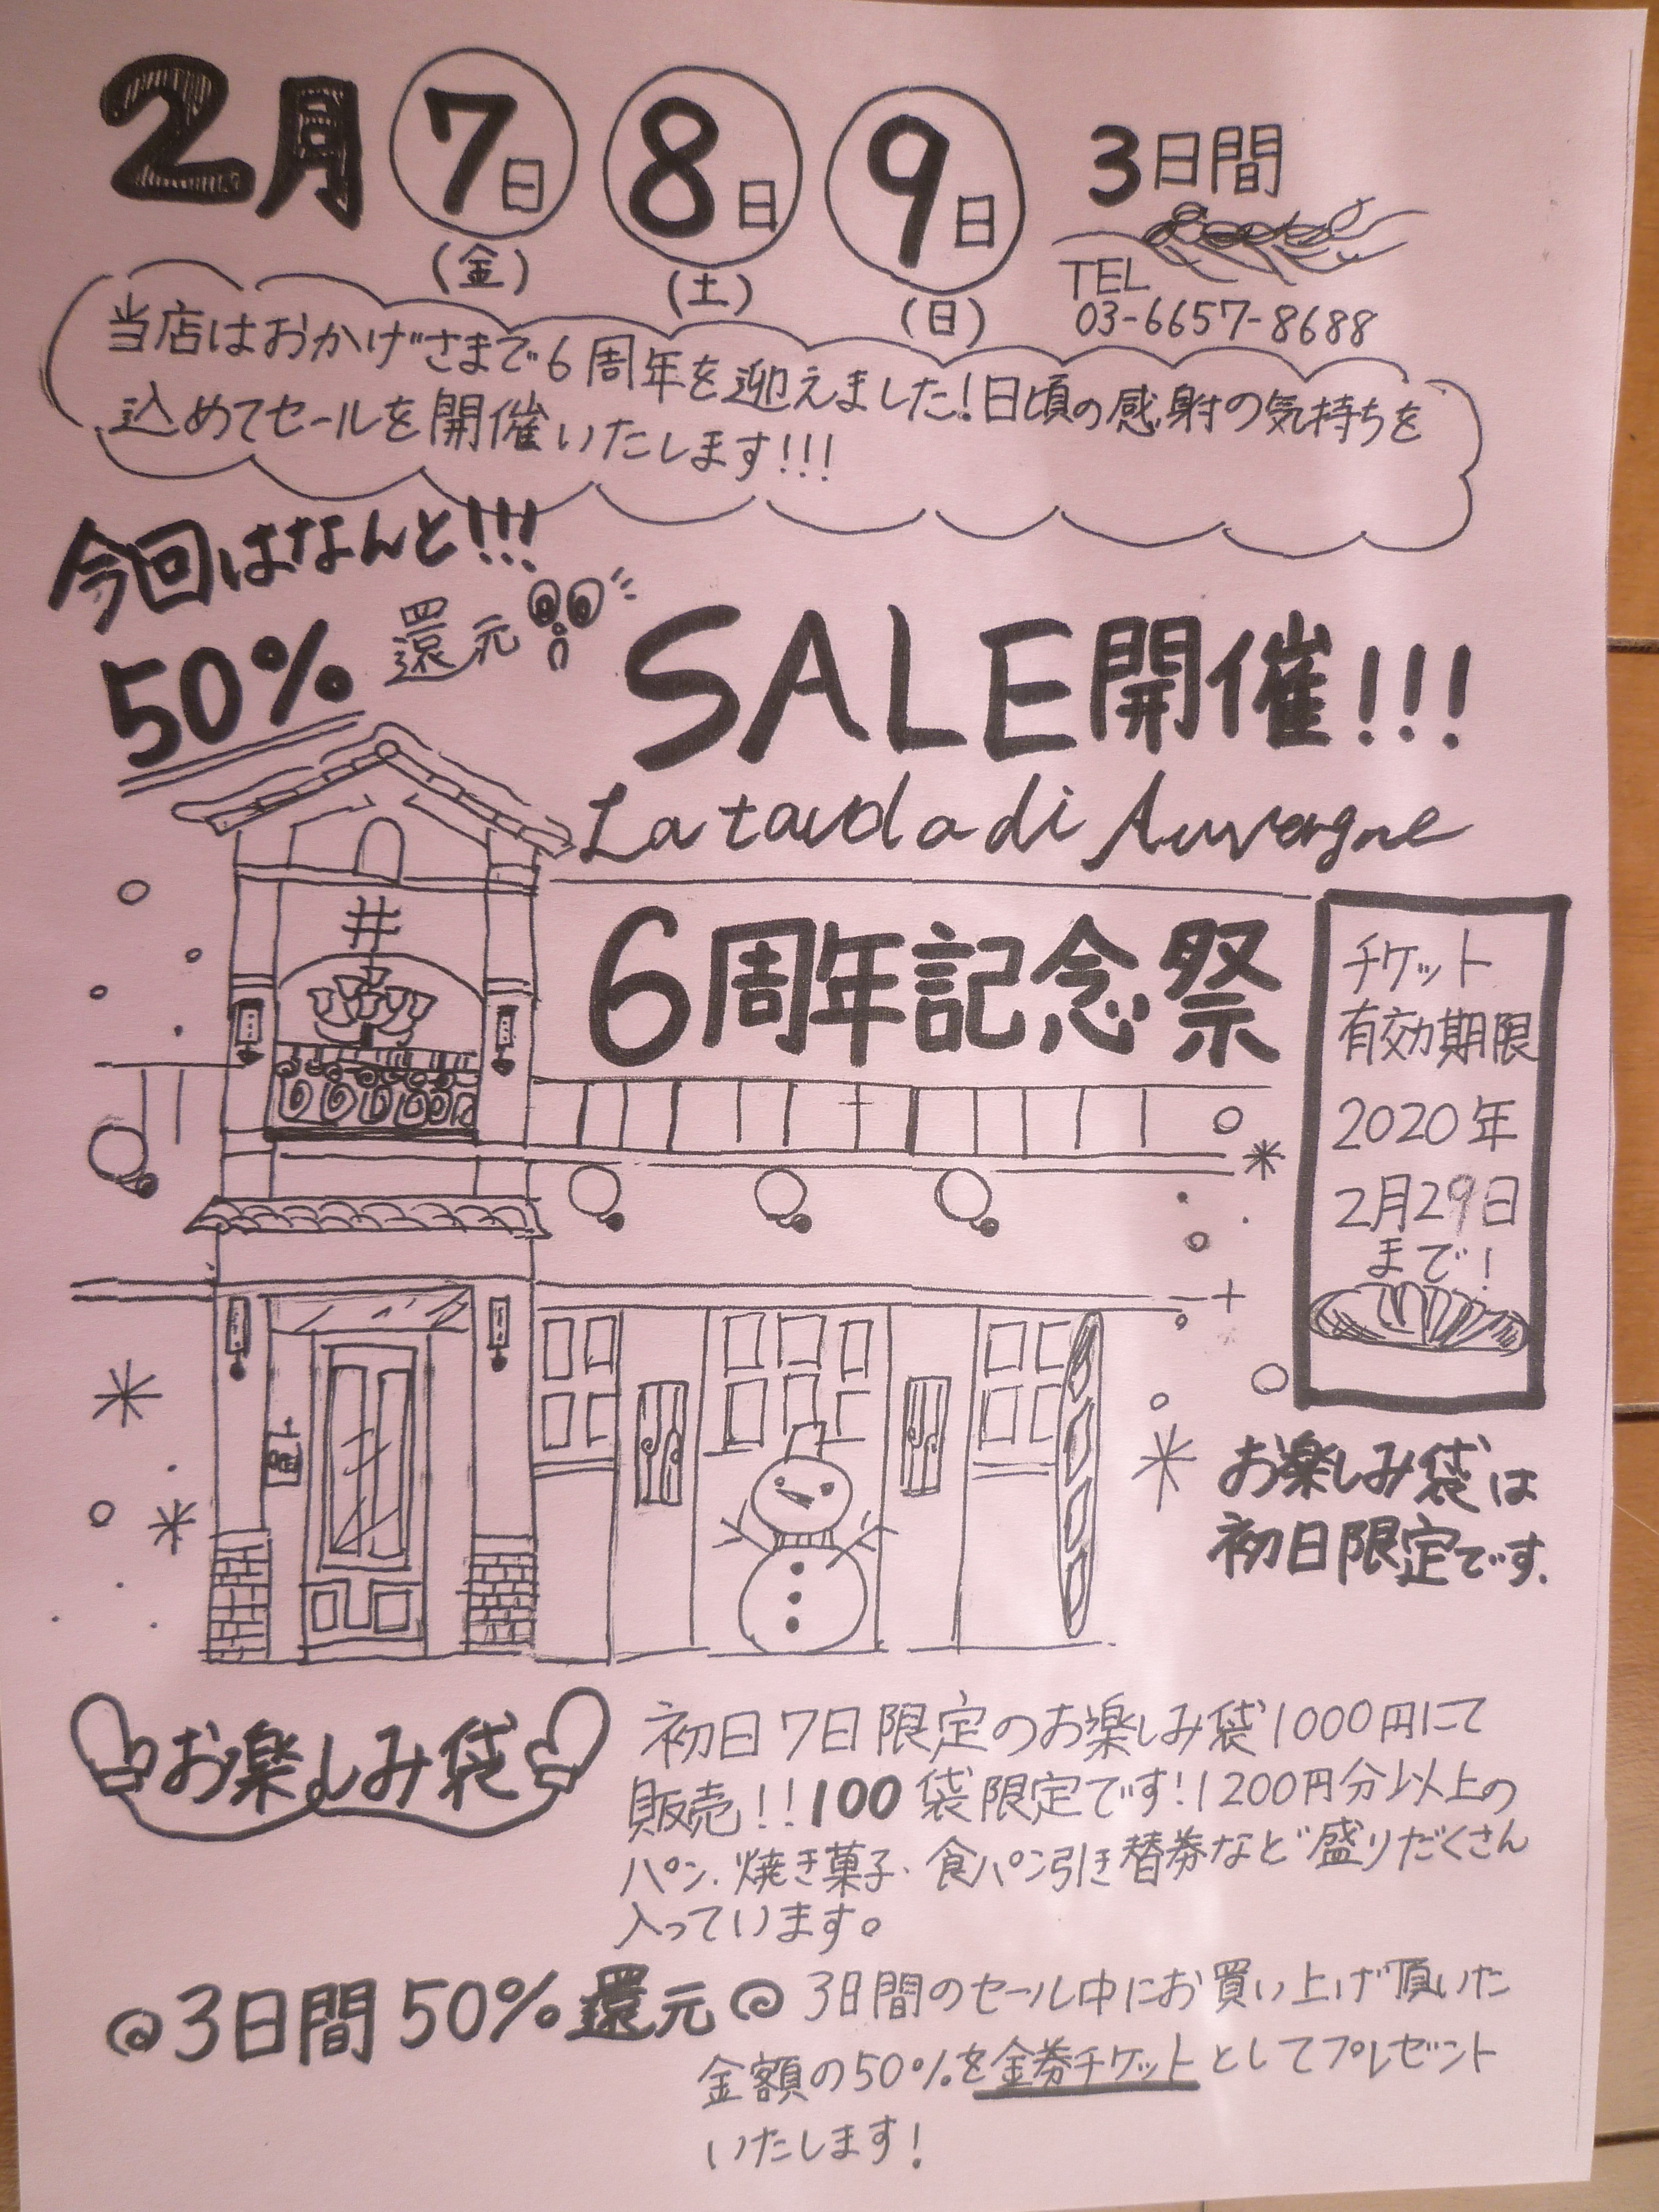 2月 7日 8日 9日 3日間
(金) (土) (日)
TEL
03-6657-8688
当店はおかげさまで6周年を迎えました!日頃の感謝の気持ちを
込めてセールを開催いたします!!!
今回はなんと!!!
50% 還元
SALE開催!!!
La tavola di Auvergne
6周年記念祭
チケット
有効期限
2020年
2月29日
まで!
お楽しみ袋は
初日限定です.
お楽しみ袋
初日7日限定のお楽しみ袋1000円にて
販売!!100袋限定です!1200円分以上の
パン、焼き菓子、食パン引き替券など盛りだくさん
入っています。
3日間50%還元
3日間のセール中にお買い上げ頂いた
金額の50%を金券チケットとしてプレゼント
いたします!